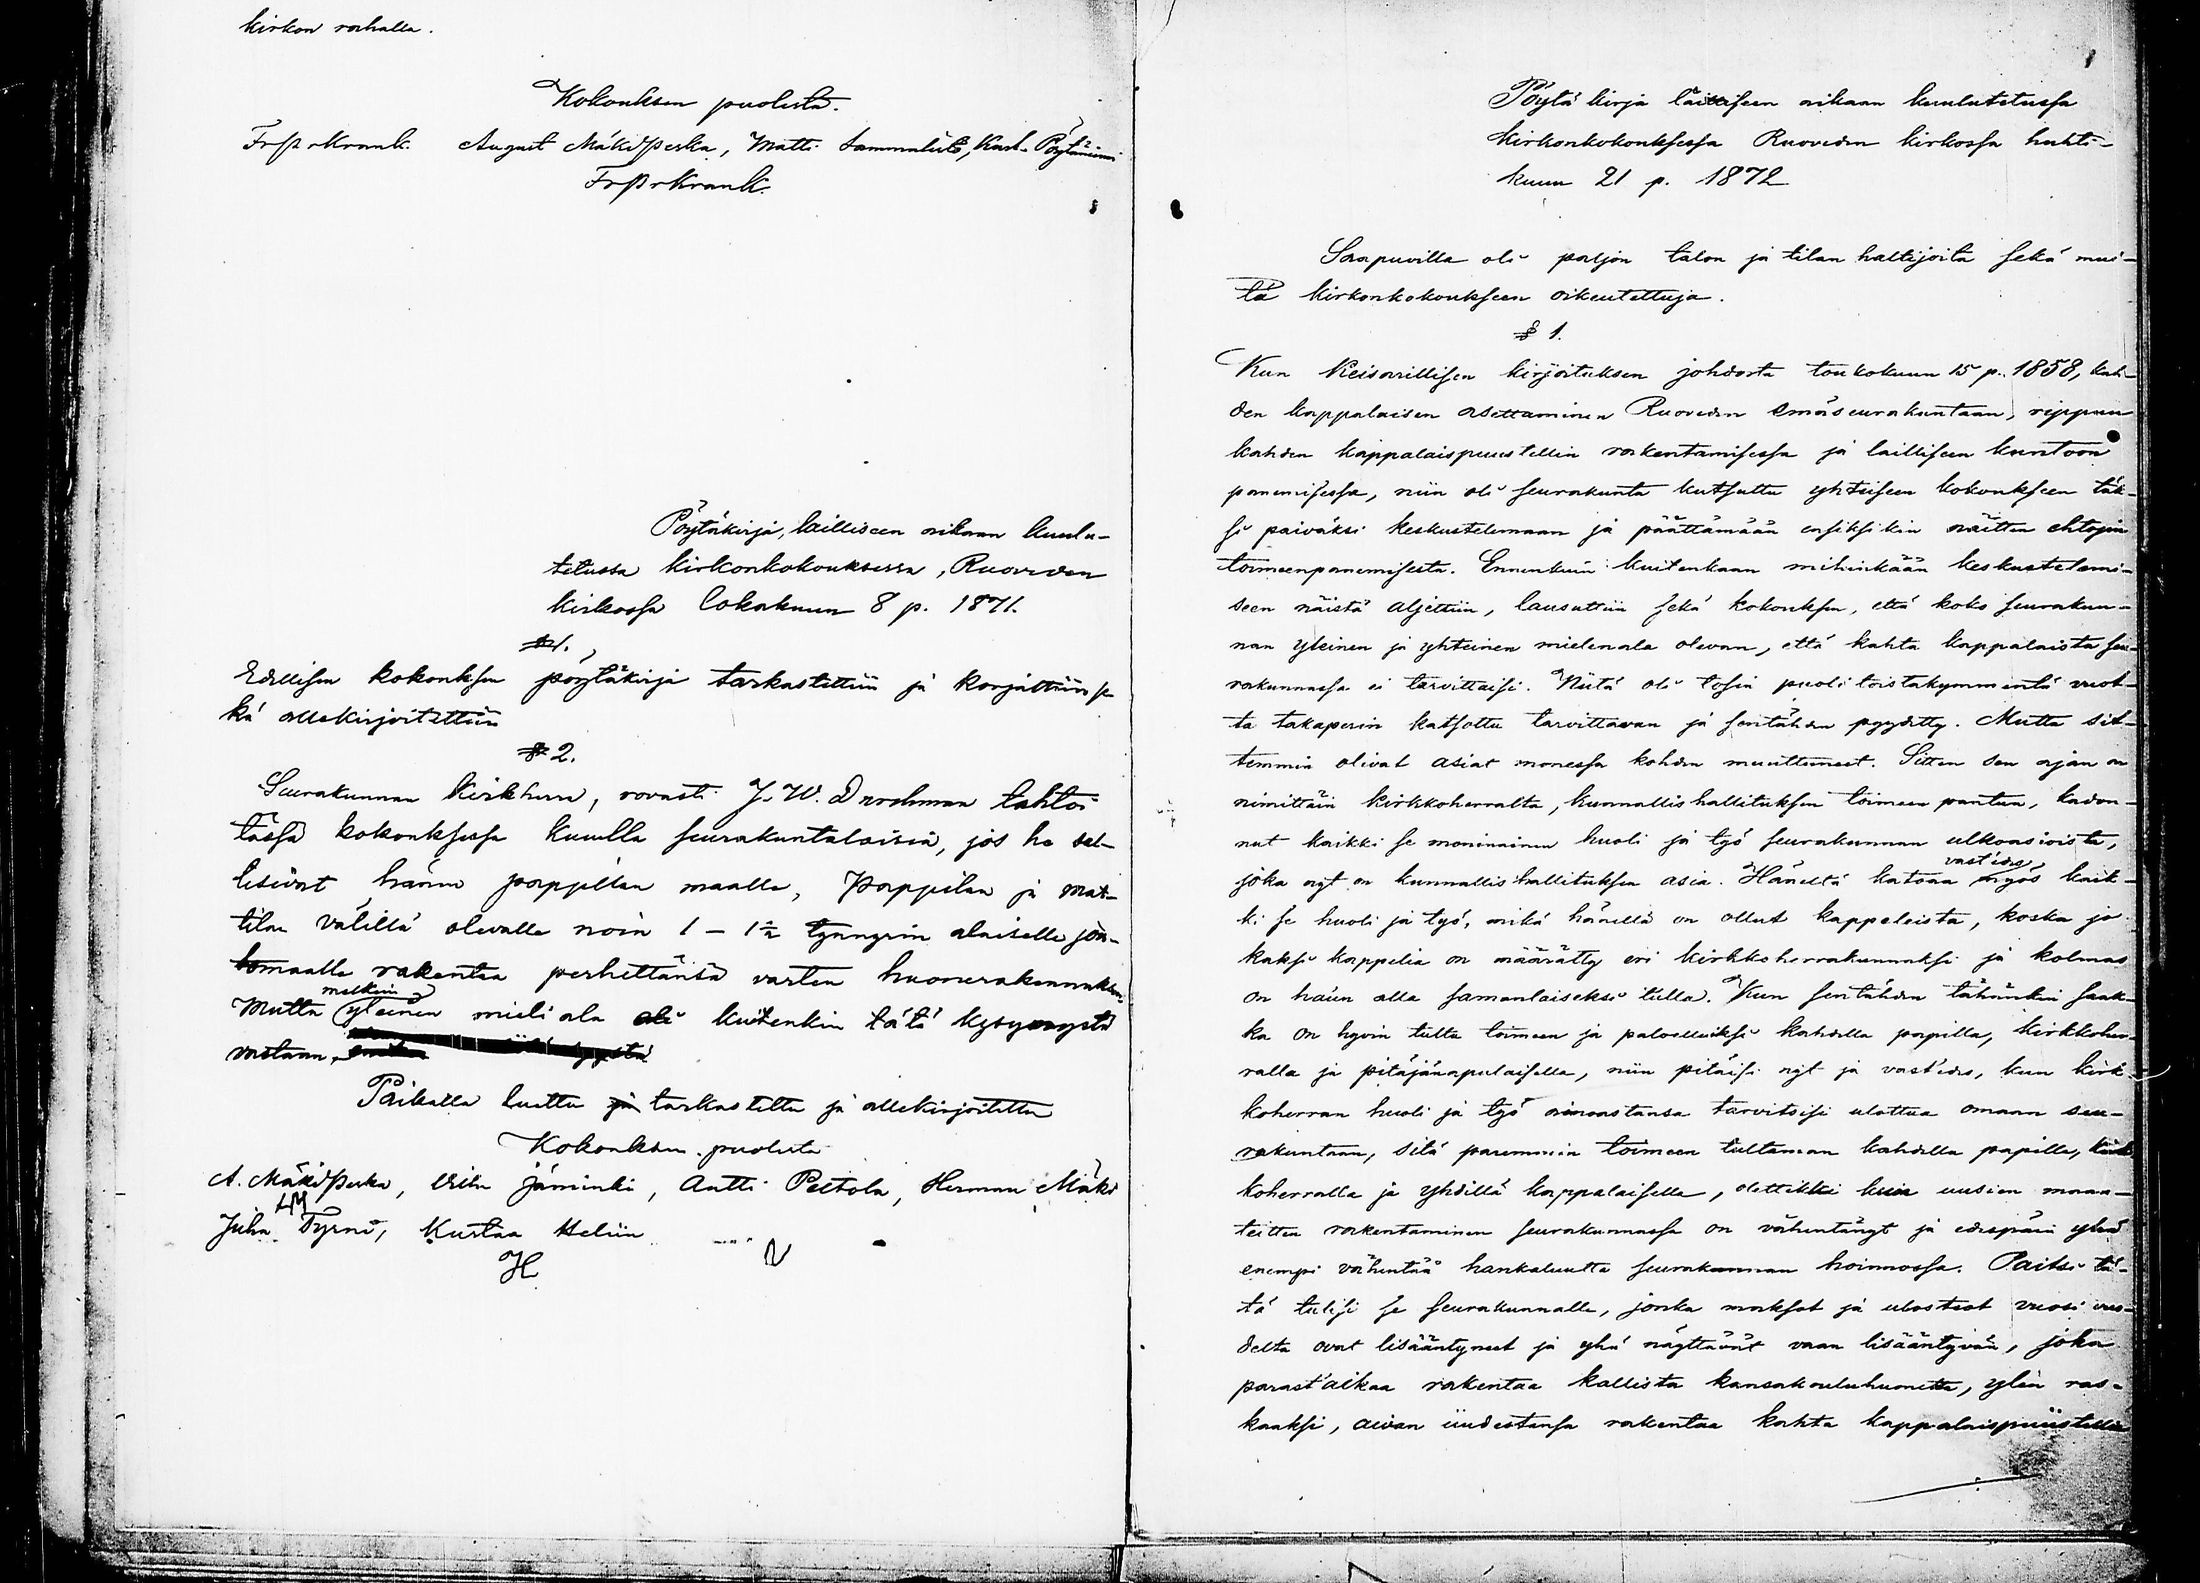 kirkon rahalla.
Kokouksen puolesta.
Frspr Krank. August Mäkikerka, Matti Sammalisto, Karl Pöytäniemi
Frspr Krank.
Pöytäkirja, lailliseen aikaan kuulu-
tetussa kirkonkokouksessa, Ruoveden
kirkossa lokakuun 8 p. 1871.
§ 1.
Edellisen kokouksen pöytäkirja tarkastettiin ja korjattiin se
kä allekirjoitettiin
§ 2.
Seurakunnan kirkherra, rovasti J. W. Durchman tahtoi
tässä kokouksessa kuulla seurakuntalaisia, jos he sal-
lisivat hänen pappilan maalle, Pappilan ja Mat-
tilan välillä olevalle noin 1 – 1 ½ tynnyrin alaiselle jou-
tomaalle rakentaa perhettänsä varten huonerakennuksen.
Mutta melkein yleinen mieliala oli kuitenkin tätä kysymystä
vastaan,
Paikalla luettu ja tarkastettu ja allekirjoitettu
Kokouksen puolesta
A. Mäkikerka, Erik Jäminki, Antti Peltola, Herman Mäki
Juha Tyrni, Kustaa Heliin
H N
Pöytäkirja lailliseen aikaan kuulutetussa
kirkonkokouksessa Ruoveden kirkossa huhti-
kuun 21 p. 1872
Saapuvilla oli paljon talon ja tilan haltijoita sekä mui-
ta kirkonkokoukseen oikeutettuja.
§ 1.
Kun Keisarillisen kirjoituksen johdosta toukokuun 15 p. 1858, kah-
den kappalaisen asettaminen Ruoveden emäseurakuntaan, rippuu
kahden kappalaispuustellin rakentamisessa ja lailliseen kuntoon
panemisessa, niin oli seurakunta kutsuttu yhteiseen kokoukseen täk-
si päiväksi keskustelemaan ja päättämään ensiksikin näitten ehtojen
toimeenpanemisesta. Ennenkuin kuitenkaan mihinkään keskustelemi-
seen näistä aljettiin, lausuttiin sekä kokouksen, että koko seurakun-
nan yleinen ja yhteinen mielenala olevan, että kahta kappalaista seu-
rakunnassa ei tarvittaisi. Niitä oli tosin puolitoistakymmentä vuot-
ta takaperin katsottu tarvittavan ja sentähden pyydetty. Mutta sit-
temmin olivat asiat monessa kohden muuttuneet. Sitten sen ajan on
nimittäin kirkkoherralta, kunnallishallituksen toimeen pantua, kadon-
nut kaikki se moninainen huoli ja työ seurakunnan ulkoasioista,
joka nyt on kunnallishallituksen asia. Häneltä katoaa vast'edes myös kaik-
ki se huoli ja työ, mikä hänellä on ollut kappeleista, koska jo
kaksi kappelia on määrätty eri kirkkoherrakunnaksi ja kolmas
on haun alla samanlaiseksi tulla. Kun sentähden tähänkin saak-
ka on hyvin tultu toimeen ja palvelluiksi kahdella papilla, kirkkoher-
ralla ja pitäjänapulaisella, niin pitäisi nyt ja vast'edes, kun kirk-
koherran huoli ja työ ainoastansa tarvitsisi ulottua omaan seu-
rakuntaan, sitä paremmin toimeen tultaman kahdella papilla, kirk-
koherralla ja yhdellä kappalaisella, olletikki kuin uusien maan-
teitten rakentaminen seurakunnassa on vähentänyt ja edespäin yhä
enempi vähentää hankaluutta seurakunnan hoinnossa. Paitsi tä-
tä tulisi se seurakunnalle, jonka maksot ja ulosteot vuosi vuo-
delta ovat lisääntyneet ja yhä näyttävät vaan lisääntyvän, joka
parast'aikaa rakentaa kallista kansakouluhuonetta, ylen ras-
kaaksi, aivan uudestansa rakentaa kahta kappalaispuustellia